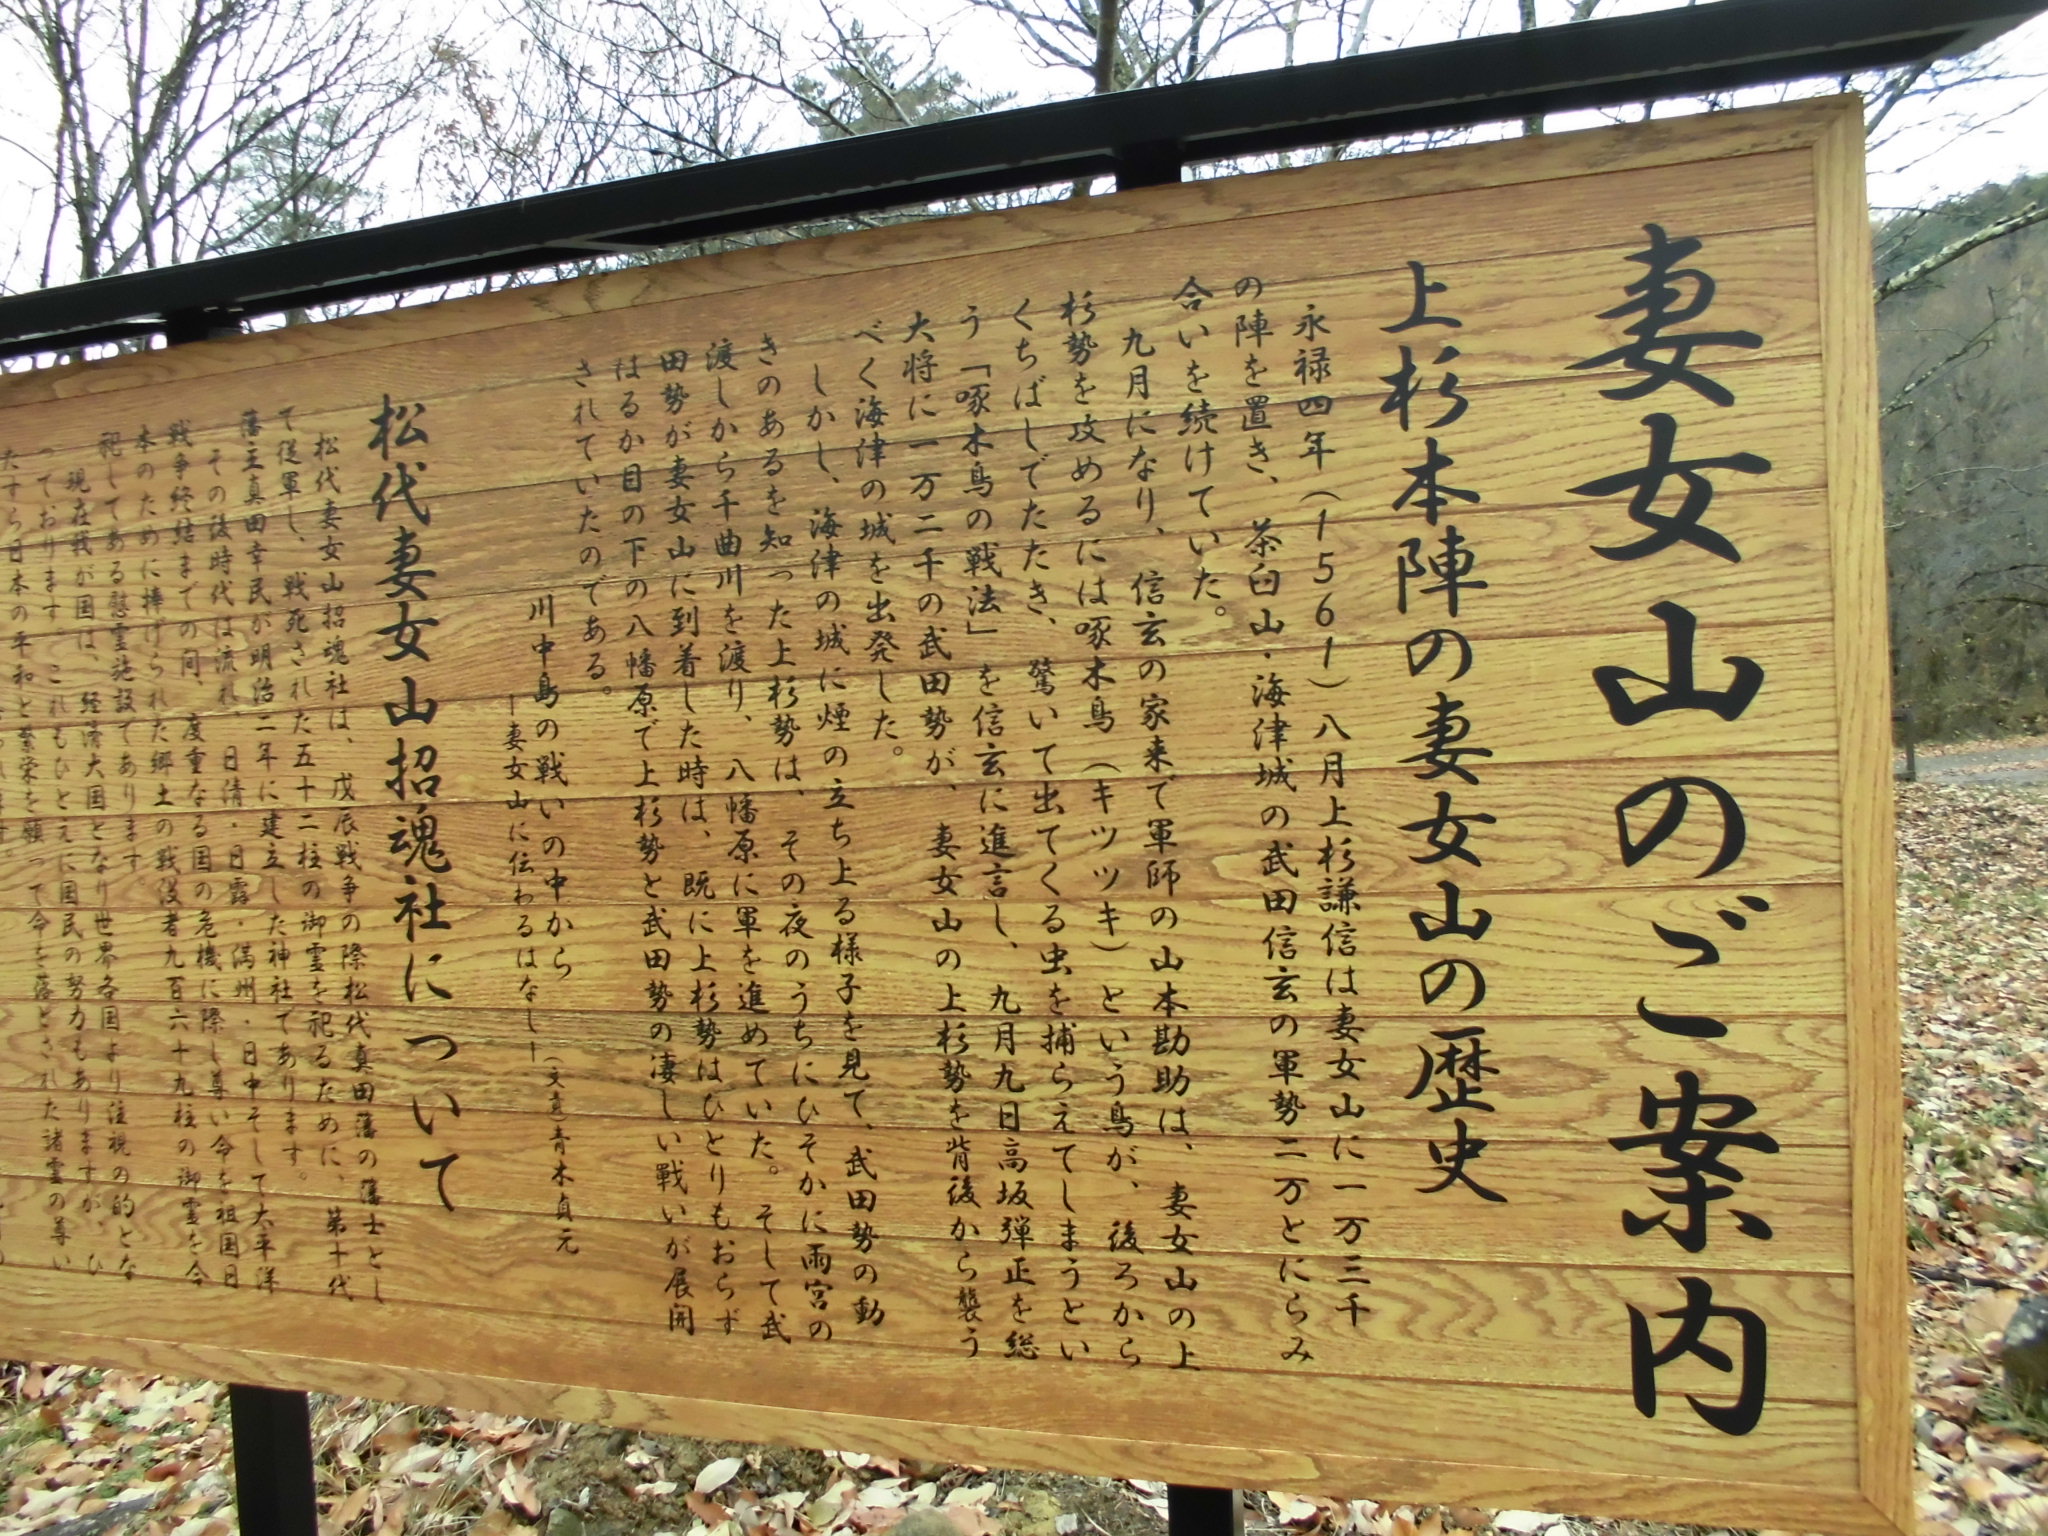 妻女山のご案内
上杉本陣の妻女山の歴史
永禄四年(1561)八月上杉謙信は妻女山に一万三千
の陣を置き、茶臼山・海津城の武田信玄の軍勢二万とにらみ
合いを続けていた。
九月になり、信玄の家来で軍師の山本勘助は、妻女山の上
杉勢を攻めるには啄木鳥(キツツキ)という鳥が、後ろから
くちばしでたたき、驚いて出てくる虫を捕らえてしまうとい
う「啄木鳥の戦法」を信玄に進言し、九月九日高坂弾正を総
大将に一万二千の武田勢が、妻女山の上杉勢を背後から襲う
べく海津の城を出発した。
しかし、海津の城に煙の立ち上る様子を見て、武田勢の動
きのあるを知った上杉勢は、その夜のうちにひそかに雨宮の
渡しから千曲川を渡り、八幡原に軍を進めていた。そして武
田勢が妻女山に到着した時は、既に上杉勢はひとりもおらず
はるか目の下の八幡原で上杉勢と武田勢の凄しい戦いが展開
されていたのである。
川中島の戦いの中から
―妻女山に伝わるはなし―(文責青木貞元
松代妻女山招魂社について
松代妻女山招魂社は、戊辰戦争の際松代真田藩の藩士とし
て従軍し、戦死された五十二柱の御霊を祀るために、第十代
藩主真田幸民が明治二年に建立した神社であります。
その後時代は流れ、日清・日露・満州・日中そして大平洋
戦争終結までの間、度重なる国の危機に際し尊い命を祖国日
本のために捧げられた郷土の戦没者九百六十九柱の御霊を合
祀してある慰霊施設であります。
現在我が国は、経済大国となり世界各国より注視の的とな
っております。これもひとえに国民の努力もありますが、ひ
たすら日本の平和と繁栄を願って命を落とされた諸霊の尊い